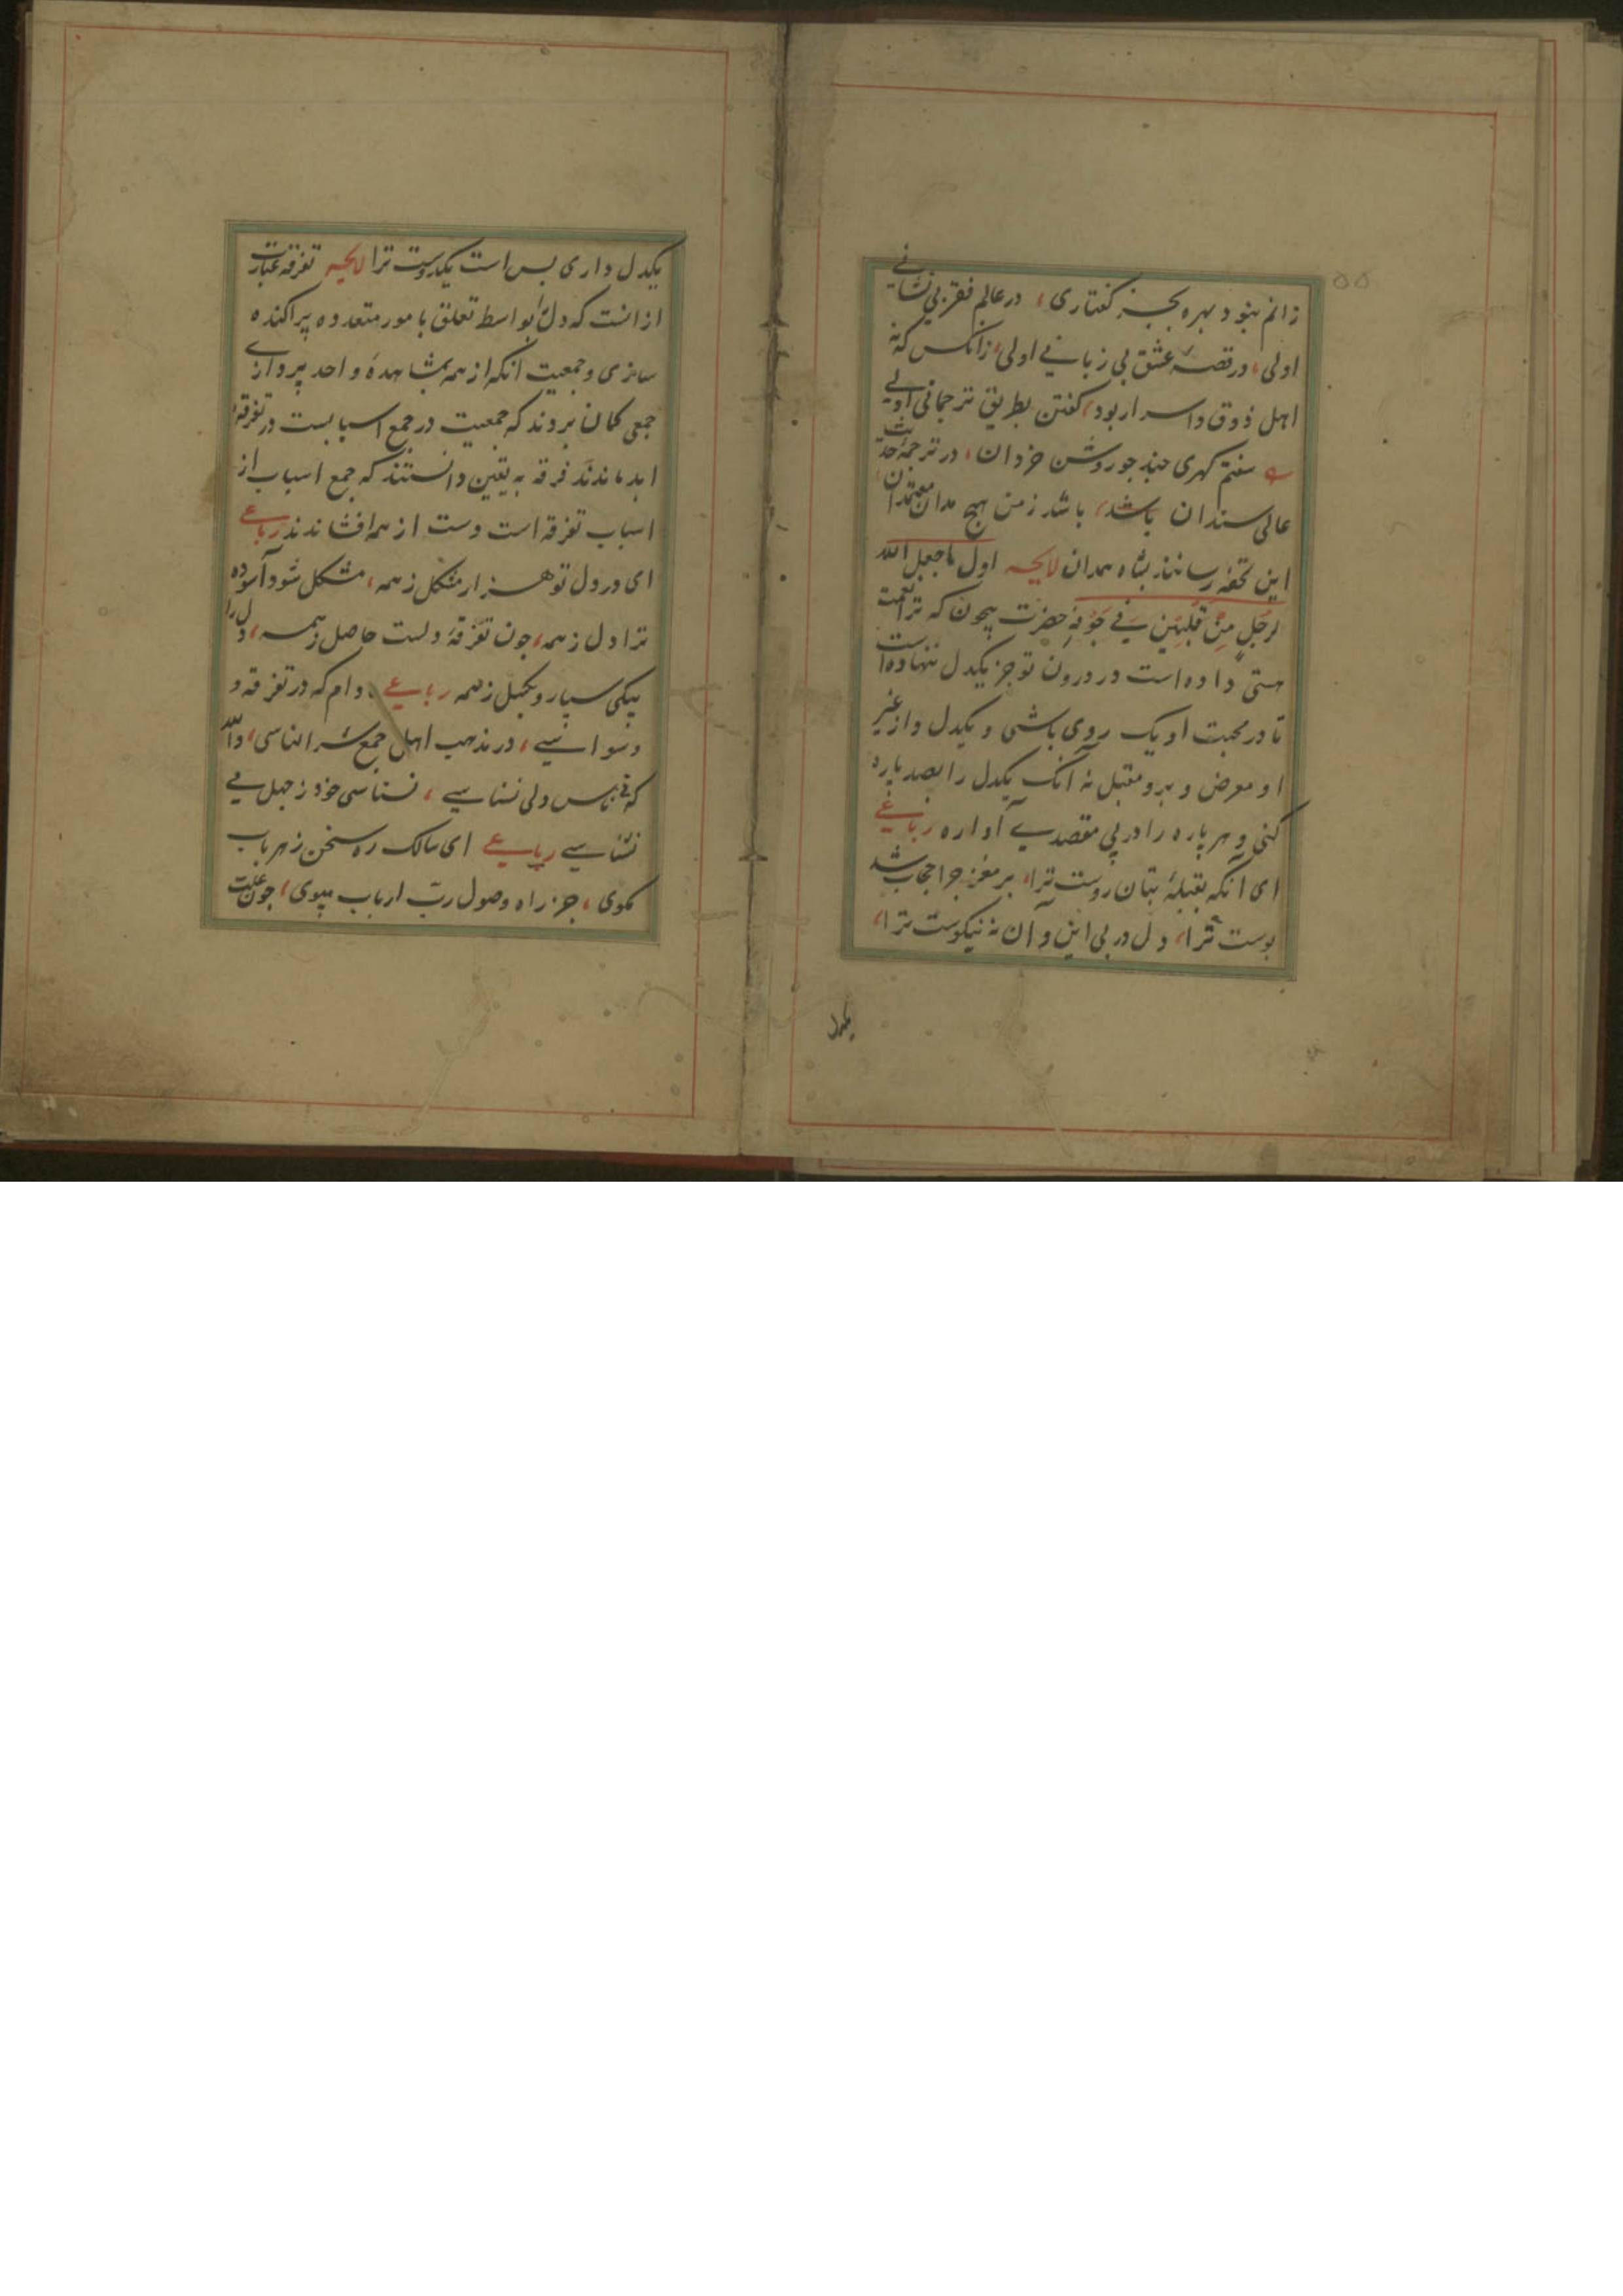 زانم نبود بهره بجز گفتاری، در عالم فقر بی نشانی
اولی، در قصۀ عشق بی زبانی اولی، زانکس که نه
اهل ذوق و اسرار بود، گفتن بطریق ترجمانی اولی
سفتم گهری چند چو روشن خردان، در ترجمۀ حدیث
عالی سندان باشد، باشد ز من هیچ مدان معتمدان
این تحفه رسانند بشاه همدان لایحه اول ما جعل الله
لِرَجُلٍ مِنْ قَلْبَيْنِ فِي جَوْفِهِ حضرت بیچون که ترا نعمت
هستی داده است در درون تو جز یکدل ننهاده است
تا در محبت او یک روی باشی و یکدل و از غیر
او معرض و برو مقبل نه آنک یکدل را بصد پاره
کنی و هر پاره را در پی مقصدی آواره رباعی
ای آنکه بقبلۀ بتان روست ترا، بر مغز چرا حجاب شد
پوست ترا، دل در پی این و آن نه نیکوست ترا،
یکدل
۵۵
یکدل داری بس است یکدوست ترا لایحه تفرقه عبارت
از انست که دل بواسط تعلق بامور متعدده پراکنده
سازی و جمعیت انکه از همه بمشاهدۀ واحد پردازی
جمعی کمان بردند که جمعیت در جمع اسبابست در تفرقه
ابد ماندند فرقه به یقین دانستند که جمع اسباب از
اسباب تفرقه است دست از همه افشاندند رباعی
ای در دل تو هزار مشکل ز همه، مشکل شود آسوده
ترا دل ز همه، چون تفرقۀ دلست حاصل ز همه، دل را
بیکی سپار و بکسل ز همه رباعی دام که در تفرقه و
وسواسی، در مذهب اهل جمع شر الناسی، والله
که نسناسی، نسناسی خود ز جهل می
نشناسی رباعی ای سالک ره سخن ز هر باب
مگوی، جز راه وصول ربّ ارباب مپوی، چون علت